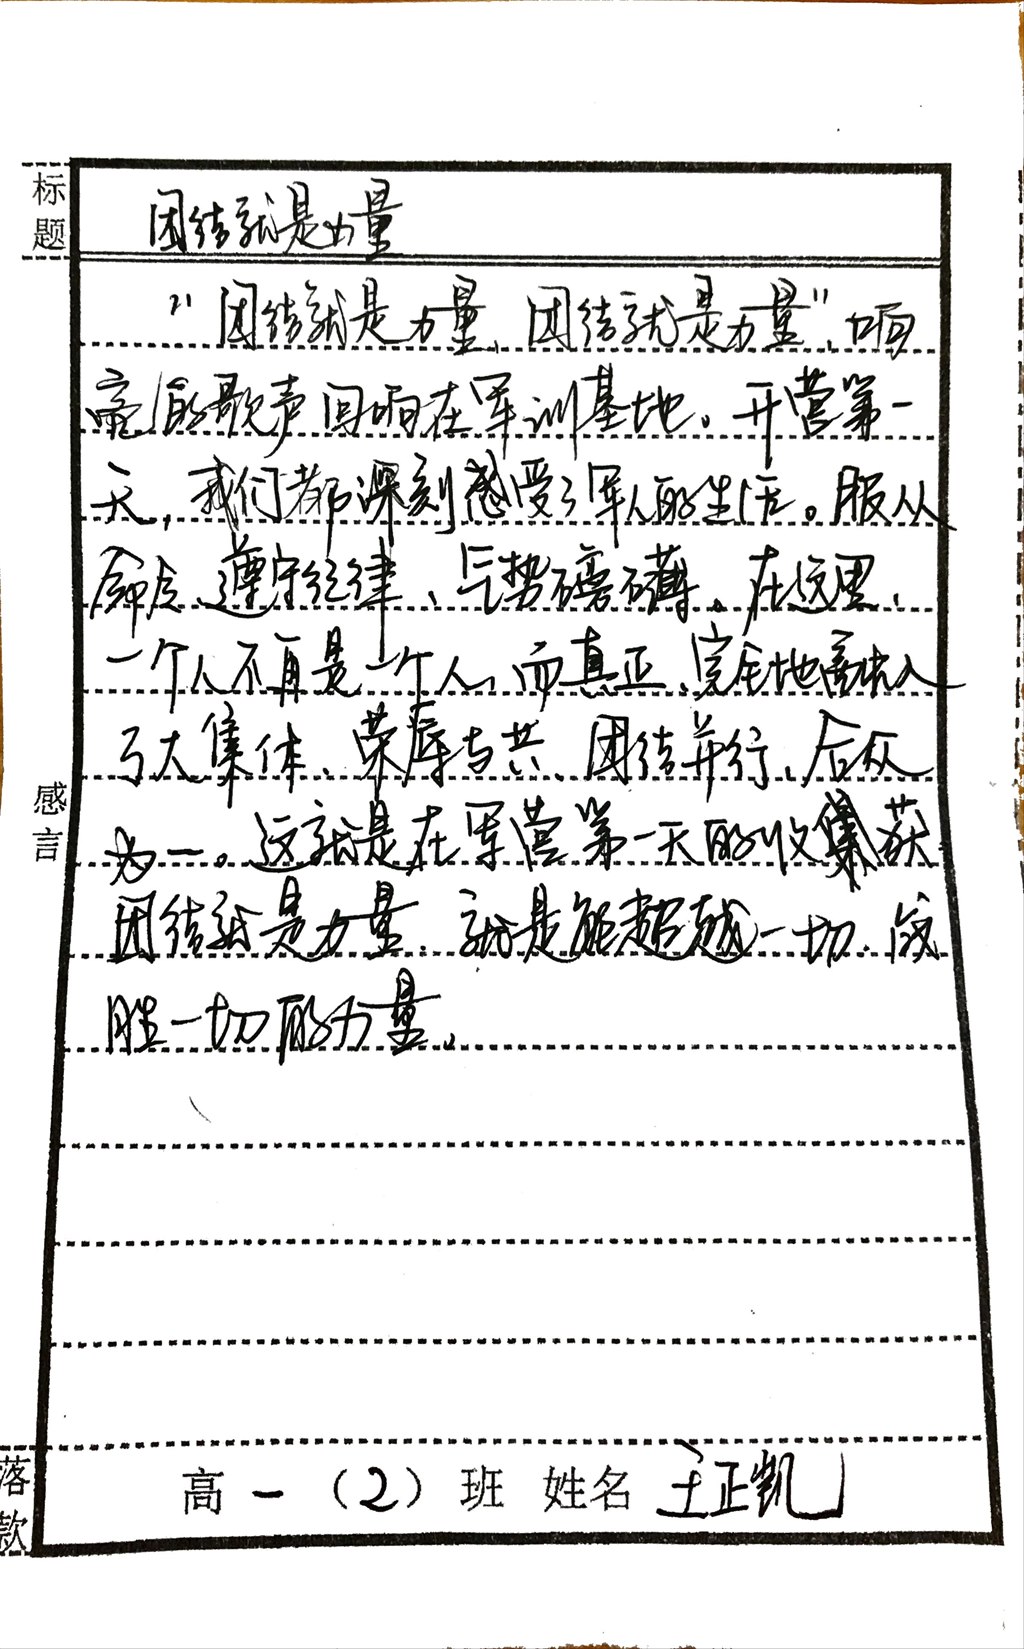 标题
团结就是力量
“团结就是力量，团结就是力量”，响
亮的歌声回响在军训基地。开营第一
天，我们都深刻感受了军人的生活。服从
命令、遵守纪律、气势磅礴。在这里，
一个人不再是一个人，而真正、完全地融入
了大集体、荣辱与共、团结并行、合众
为一。这就是在军营第一天的收获
团结就是力量，就是能超越一切、战
胜一切的力量。
感言
落款
高一（2）班 姓名 王正凯